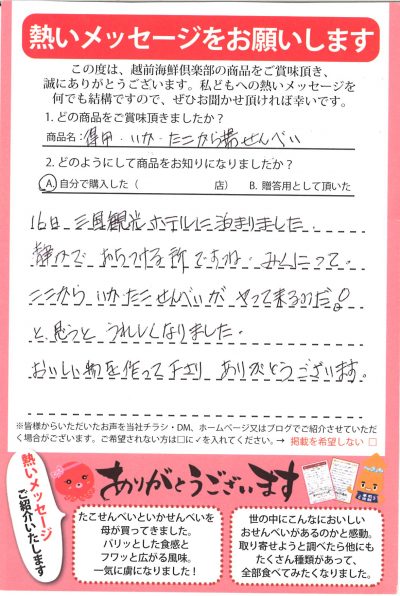 熱いメッセージをお願いします
この度は、越前海鮮倶楽部の商品をご賞味頂き、
誠にありがとうございます。私どもへの熱いメッセージを
何でも結構ですので、ぜひお聞かせ頂ければ幸いです。
1. どの商品をご賞味頂きましたか?
商品名: 得用・いか・たこから揚せんべい
2. どのようにして商品をお知りになりましたか?
A. 自分で購入した( 店) B. 贈答用として頂いた
16日 三国観光ホテルに泊まりました.
静かで おちつける所ですね. みくにって.
ここから いか・たこせんべいが やって来るのだ!
と思うと うれしくなりました.
おいしい物を作って下さり ありがとうございます。
※皆様からいただいたお声を当社チラシ・DM、ホームページ又はブログでご紹介させていただ
く場合がございます。ご希望されない方は□に✓を入れてください。→ 掲載を希望しない □
熱いメッセージ
ご紹介いたします
ありがとうございます
たこせんべいといかせんべいを
母が買ってきました。
パリッとした食感と
フワッと広がる風味。
一気に虜になりました!
世の中にこんなにおいしい
おせんべいがあるのかと感動。
取り寄せようと調べたら他にも
たくさん種類があって、
全部食べてみたくなりました。